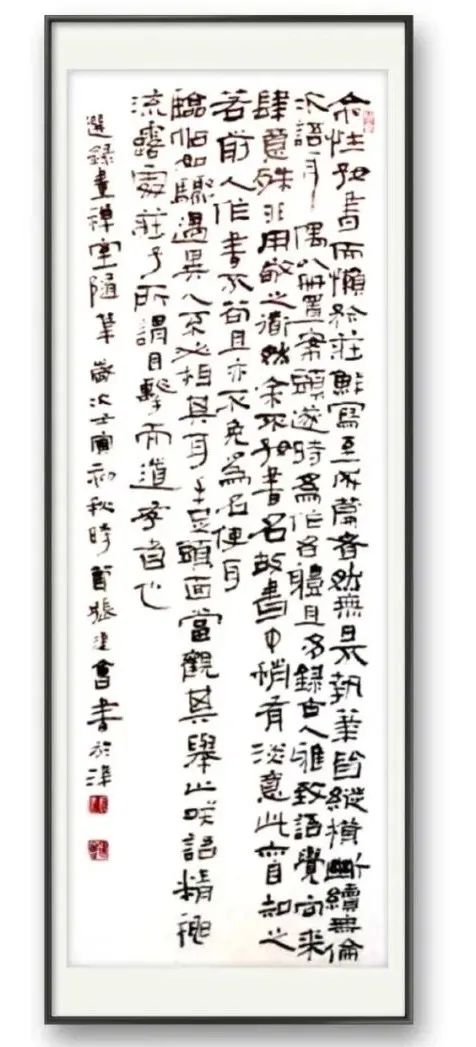 余性好書而懶矜莊鮮寫至成篇者然無日不執筆皆縱橫斷續無倫
次語耳偶以冊置案頭遂時為作各體且多錄古人雅致語覺向來
肆意殊非用敬之道然余不好書名故書中稍有淡意此實知之
若前人作書不苟且亦不免為名使耳
臨帖如驟遇異人不必相其耳手足頭面當觀其舉止咲語精神
流露處莊子所謂目擊而道存者也
選錄畫禪室隨筆 歲次壬寅初秋時節張建會書於津